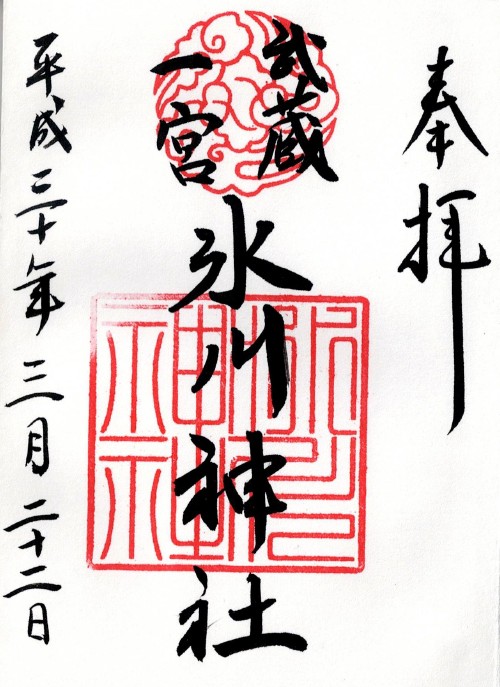 奉拝
武蔵
一宮
氷川神社
平成三十年三月二十二日